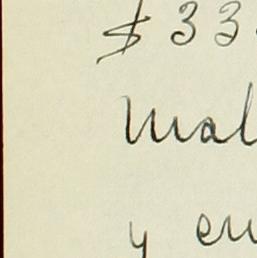 $ 33
Mal
y en